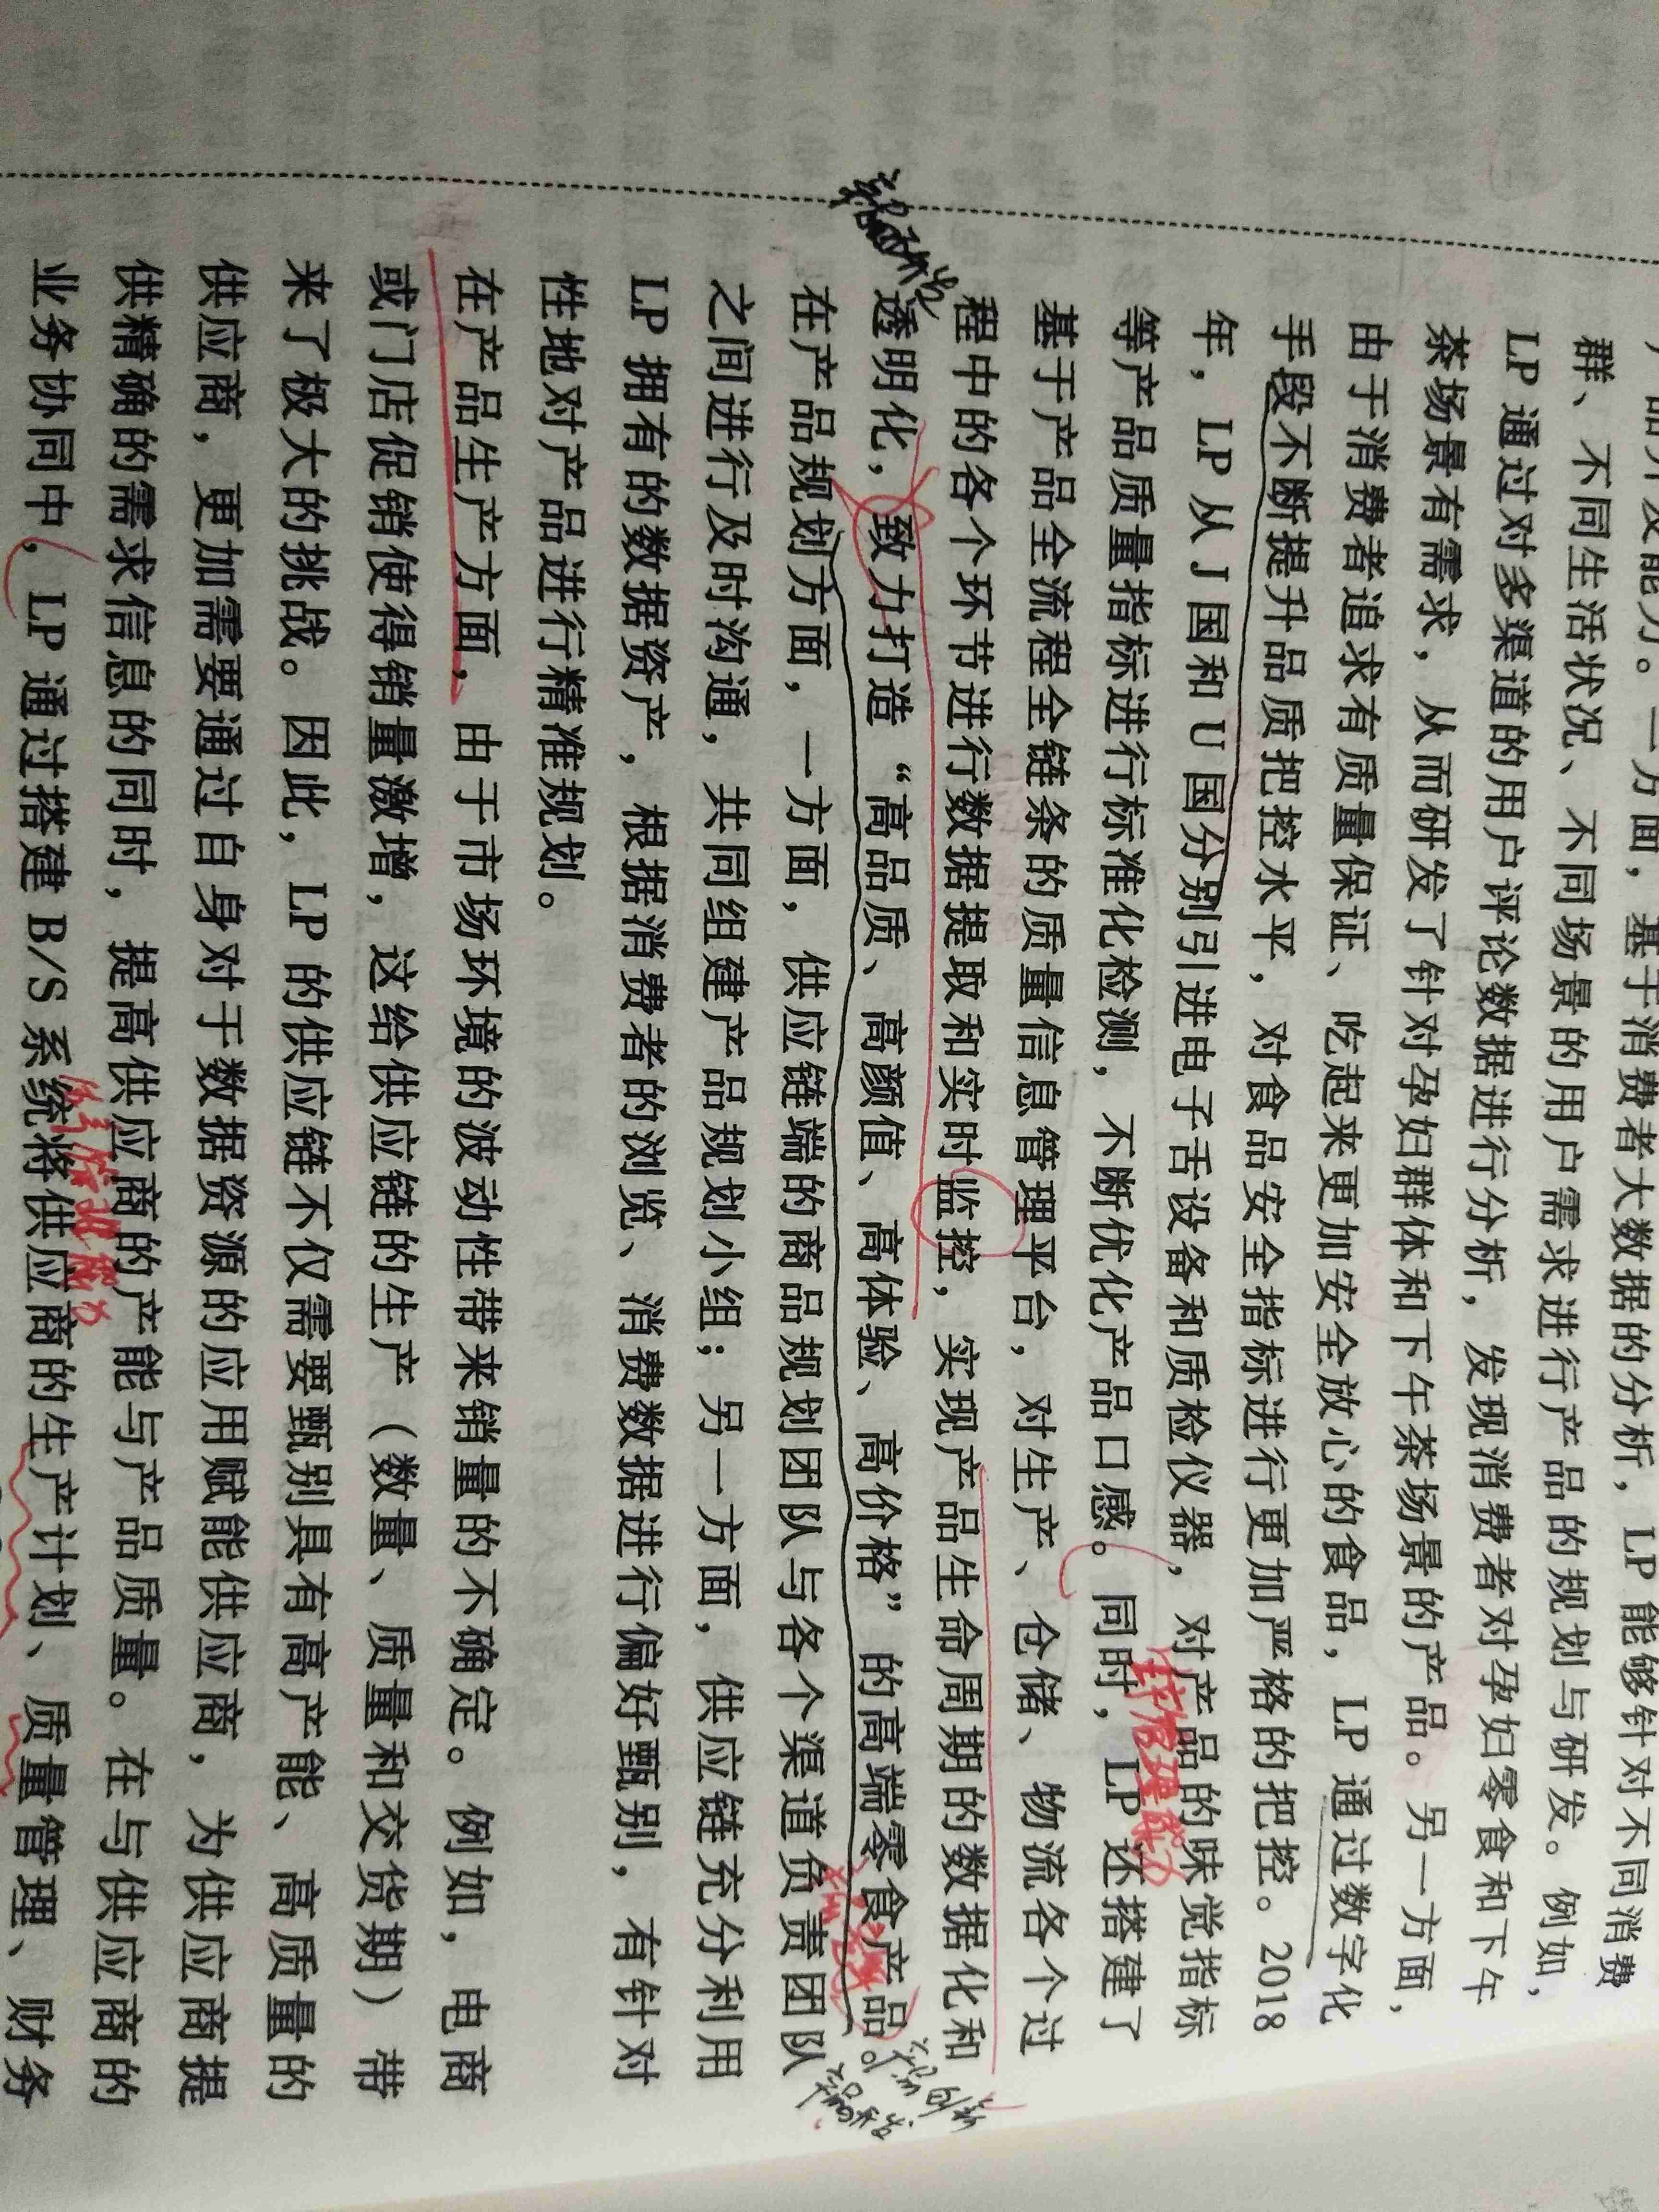 产品开发能力。一方面，基于消费者大数据的分析，LP 能够针对不同消费
群、不同生活状况、不同场景的用户需求进行产品的规划与研发。例如，
LP 通过对多渠道的用户评论数据进行分析，发现消费者对孕妇零食和下午
茶场景有需求，从而研发了针对孕妇群体和下午茶场景的产品。另一方面，
由于消费者追求有质量保证、吃起来更加安全放心的食品，LP 通过数字化
手段不断提升品质把控水平，对食品安全指标进行更加严格的把控。2018
年，LP 从 J 国和 U 国分别引进电子舌设备和质检仪器，对产品的味觉指标
等产品质量指标进行标准化检测，不断优化产品口感。同时，LP 还搭建了
基于产品全流程全链条的质量信息管理平台，对生产、仓储、物流各个过
程中的各个环节进行数据提取和实时监控，实现产品生命周期的数据化和
透明化，致力打造“高品质、高颜值、高体验、高价格”的高端零食产品。
在产品规划方面，一方面，供应链端的商品规划团队与各个渠道负责团队
之间进行及时沟通，共同组建产品规划小组；另一方面，供应链充分利用
LP 拥有的数据资产，根据消费者的浏览、消费数据进行偏好甄别，有针对
性地对产品进行精准规划。
在产品生产方面，由于市场环境的波动性带来销量的不确定。例如，电商
或门店促销使得销量激增，这给供应链的生产（数量、质量和交货期）带
来了极大的挑战。因此，LP 的供应链不仅需要甄别具有高产能、高质量的
供应商，更加需要通过自身对于数据资源的应用赋能供应商，为供应商提
供精确的需求信息的同时，提高供应商的产能与产品质量。在与供应商的
业务协同中，LP 通过搭建 B/S 系统将供应商的生产计划、质量管理、财务